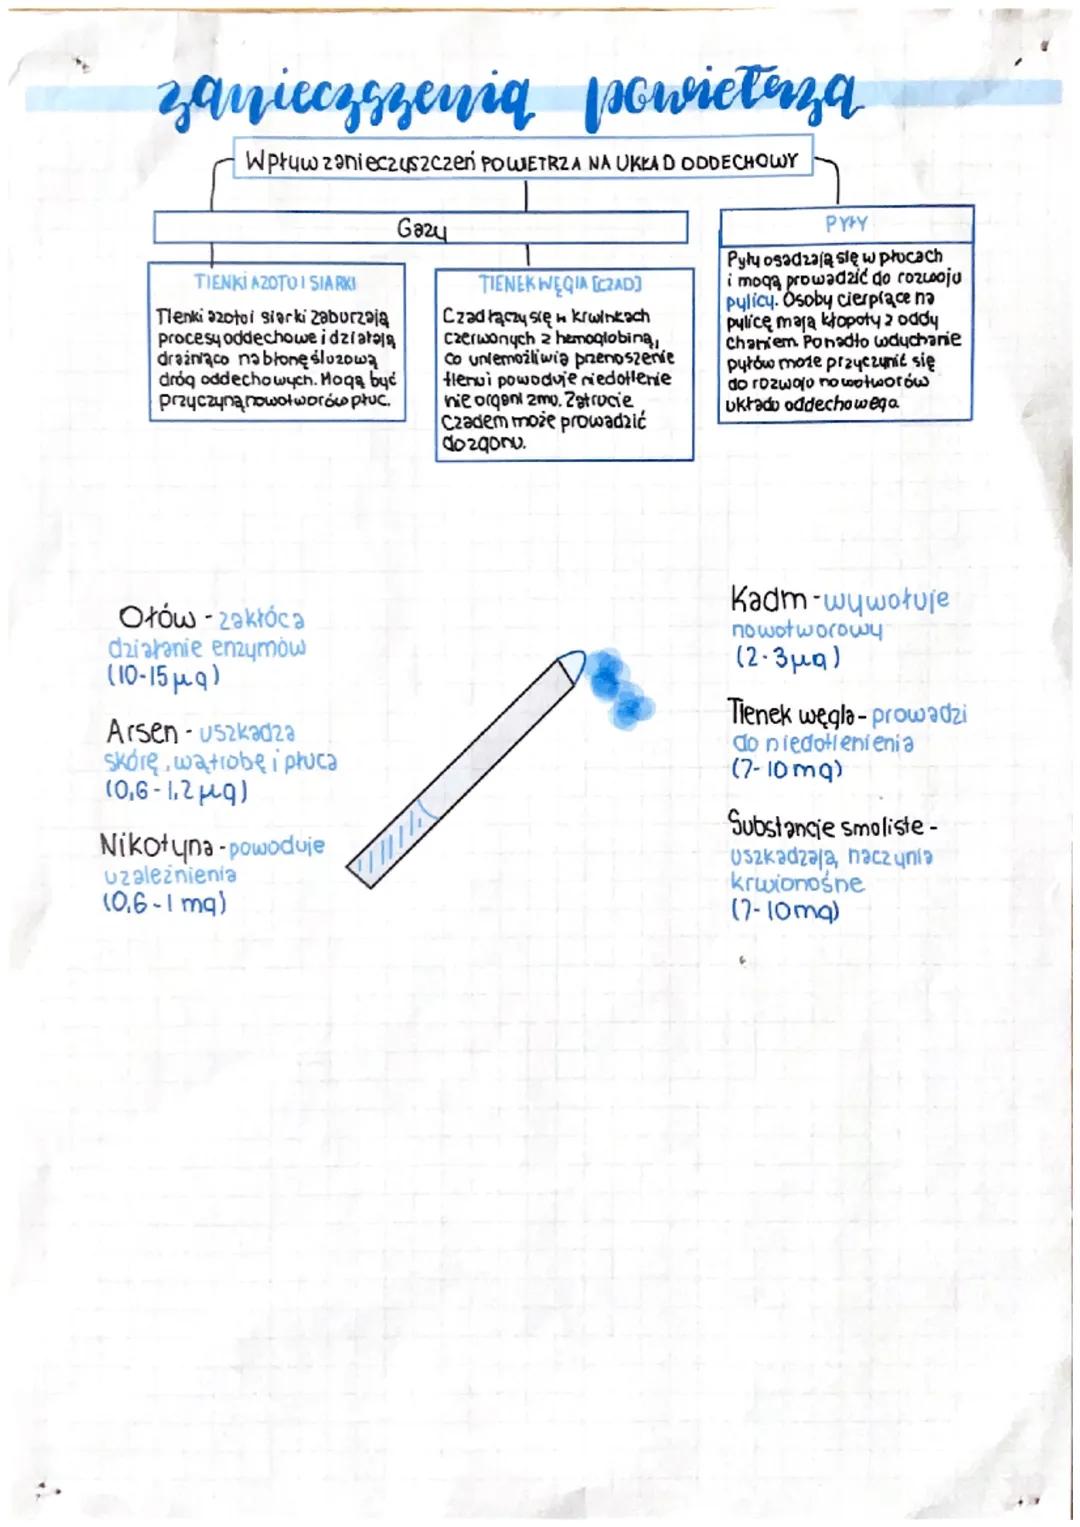 zanieczyszenia powietrza
Wpływ zanieczyszczeń POWIETRZA NA UKŁAD ODDECHOWY
Gazy
TlENKi AZOTU I SIARKI
Tlenki azotu i siarki zaburzają
procesy oddechowe i działają
drażniąco na błonę śluzową
dróg oddechowych. Mogą być
przyczyną nowotworów płuc.
TlENEK WĘGlA [CZAD]
Czad łączy się w krwinkach
czerwonych z hemoglobiną,
co uniemożliwia przenoszenie
tlenu i powoduje niedotlenie
nie organizmu. Zatrucie
czadem może prowadzić
do zgonu.
PYŁY
Pyły osadzają się w płucach
i mogą prowadzić do rozwoju
pylicy. Osoby cierpiące na
pylicę mają kłopoty z oddy
chaniem. Ponadto wdychanie
pyłów może przyczynić się
do rozwoju nowotworów
układu oddechowego
Ołów - zakłóca
działanie enzymów
(10-15 µg)
Arsen - uszkadza
skórę, wątrobę i płuca
(0,6 - 1,2 µg)
Nikotyna - powoduje
uzależnienia
(0,6 - 1 mg)
Kadm - wywołuje
nowotworowy
(2-3 µg)
Tlenek węgla - prowadzi
do niedotlenienia
(7-10 mg)
Substancje smoliste -
uszkadzają naczynia
krwionośne
(7-10 mg)